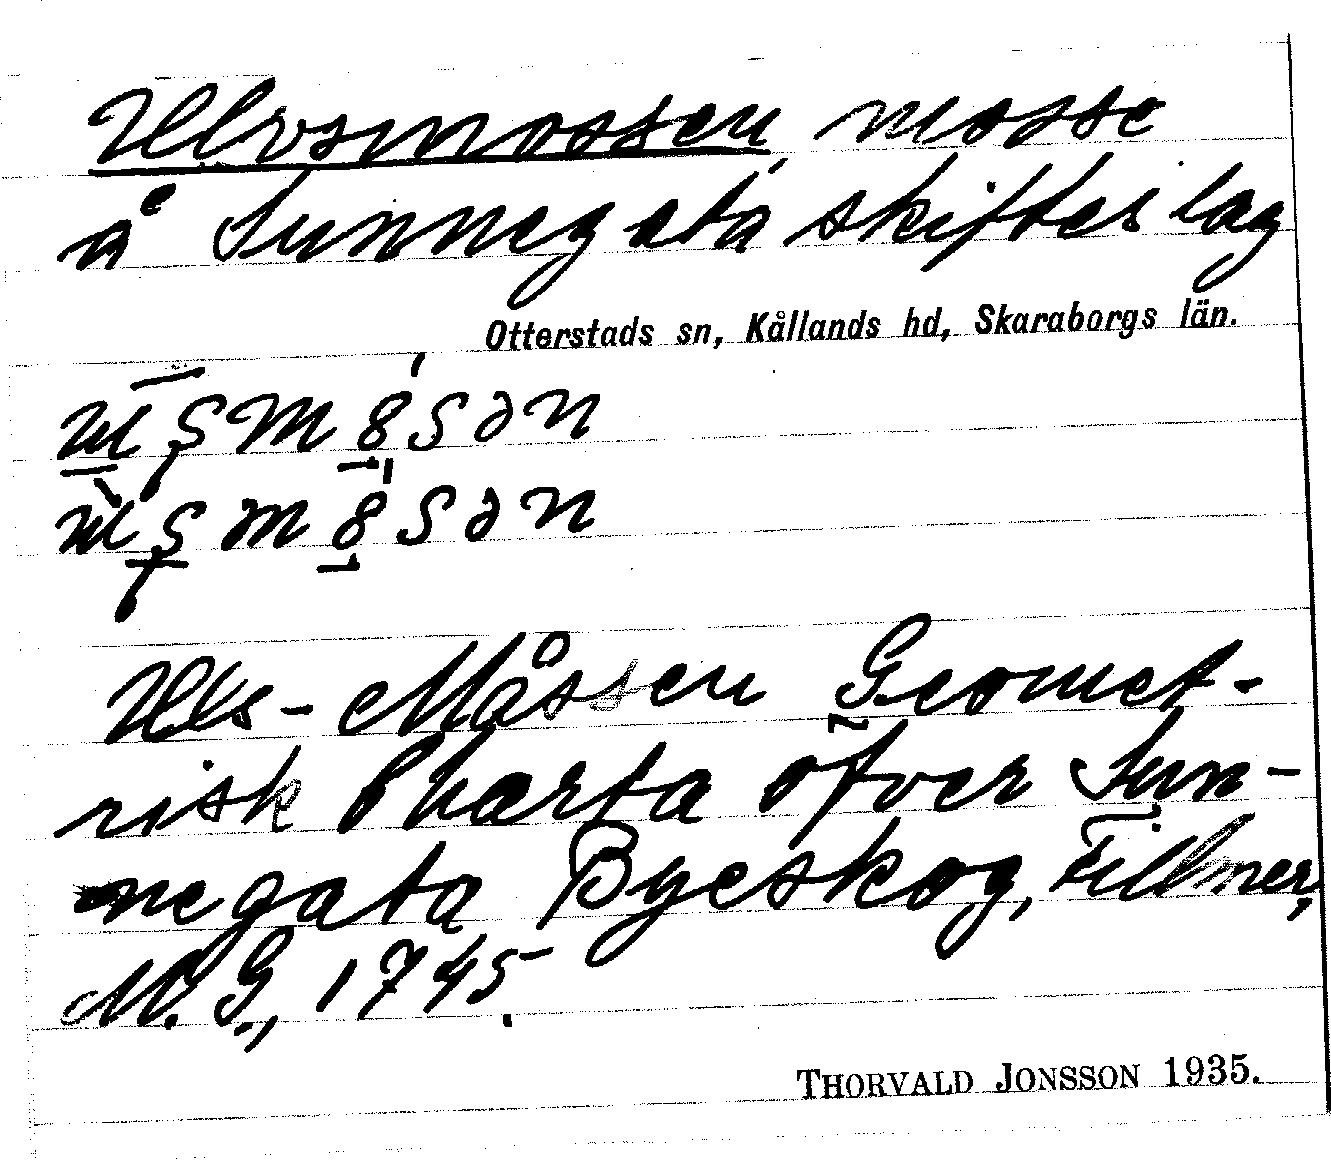 Ulvsmossen, mosse
å Sunnegata skifteslag
Otterstads sn, Kållands hd, Skaraborgs län.
Uls-Måssen Geomet-
risk Charta öfver Sun-
negata Byeskog, Fillmer,
M. G., 1745.
THORVALD JONSSON 1935.